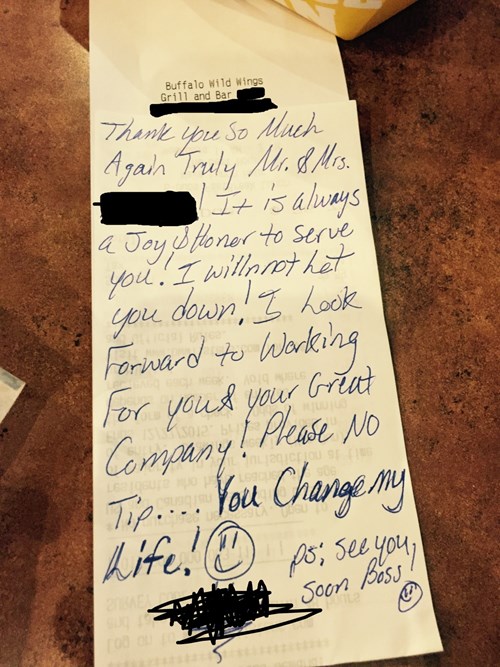 Buffalo Wild Wings
Grill and Bar
Thank you So Much
Again Truly Mr. & Mrs.
! It is always
a Joy & Honor to serve
you! I will not Let
you down! I Look
Forward to Working
For you & your Great
Company! Please NO
Tip.... You Change my
Life!
ps: see you,
soon Boss!